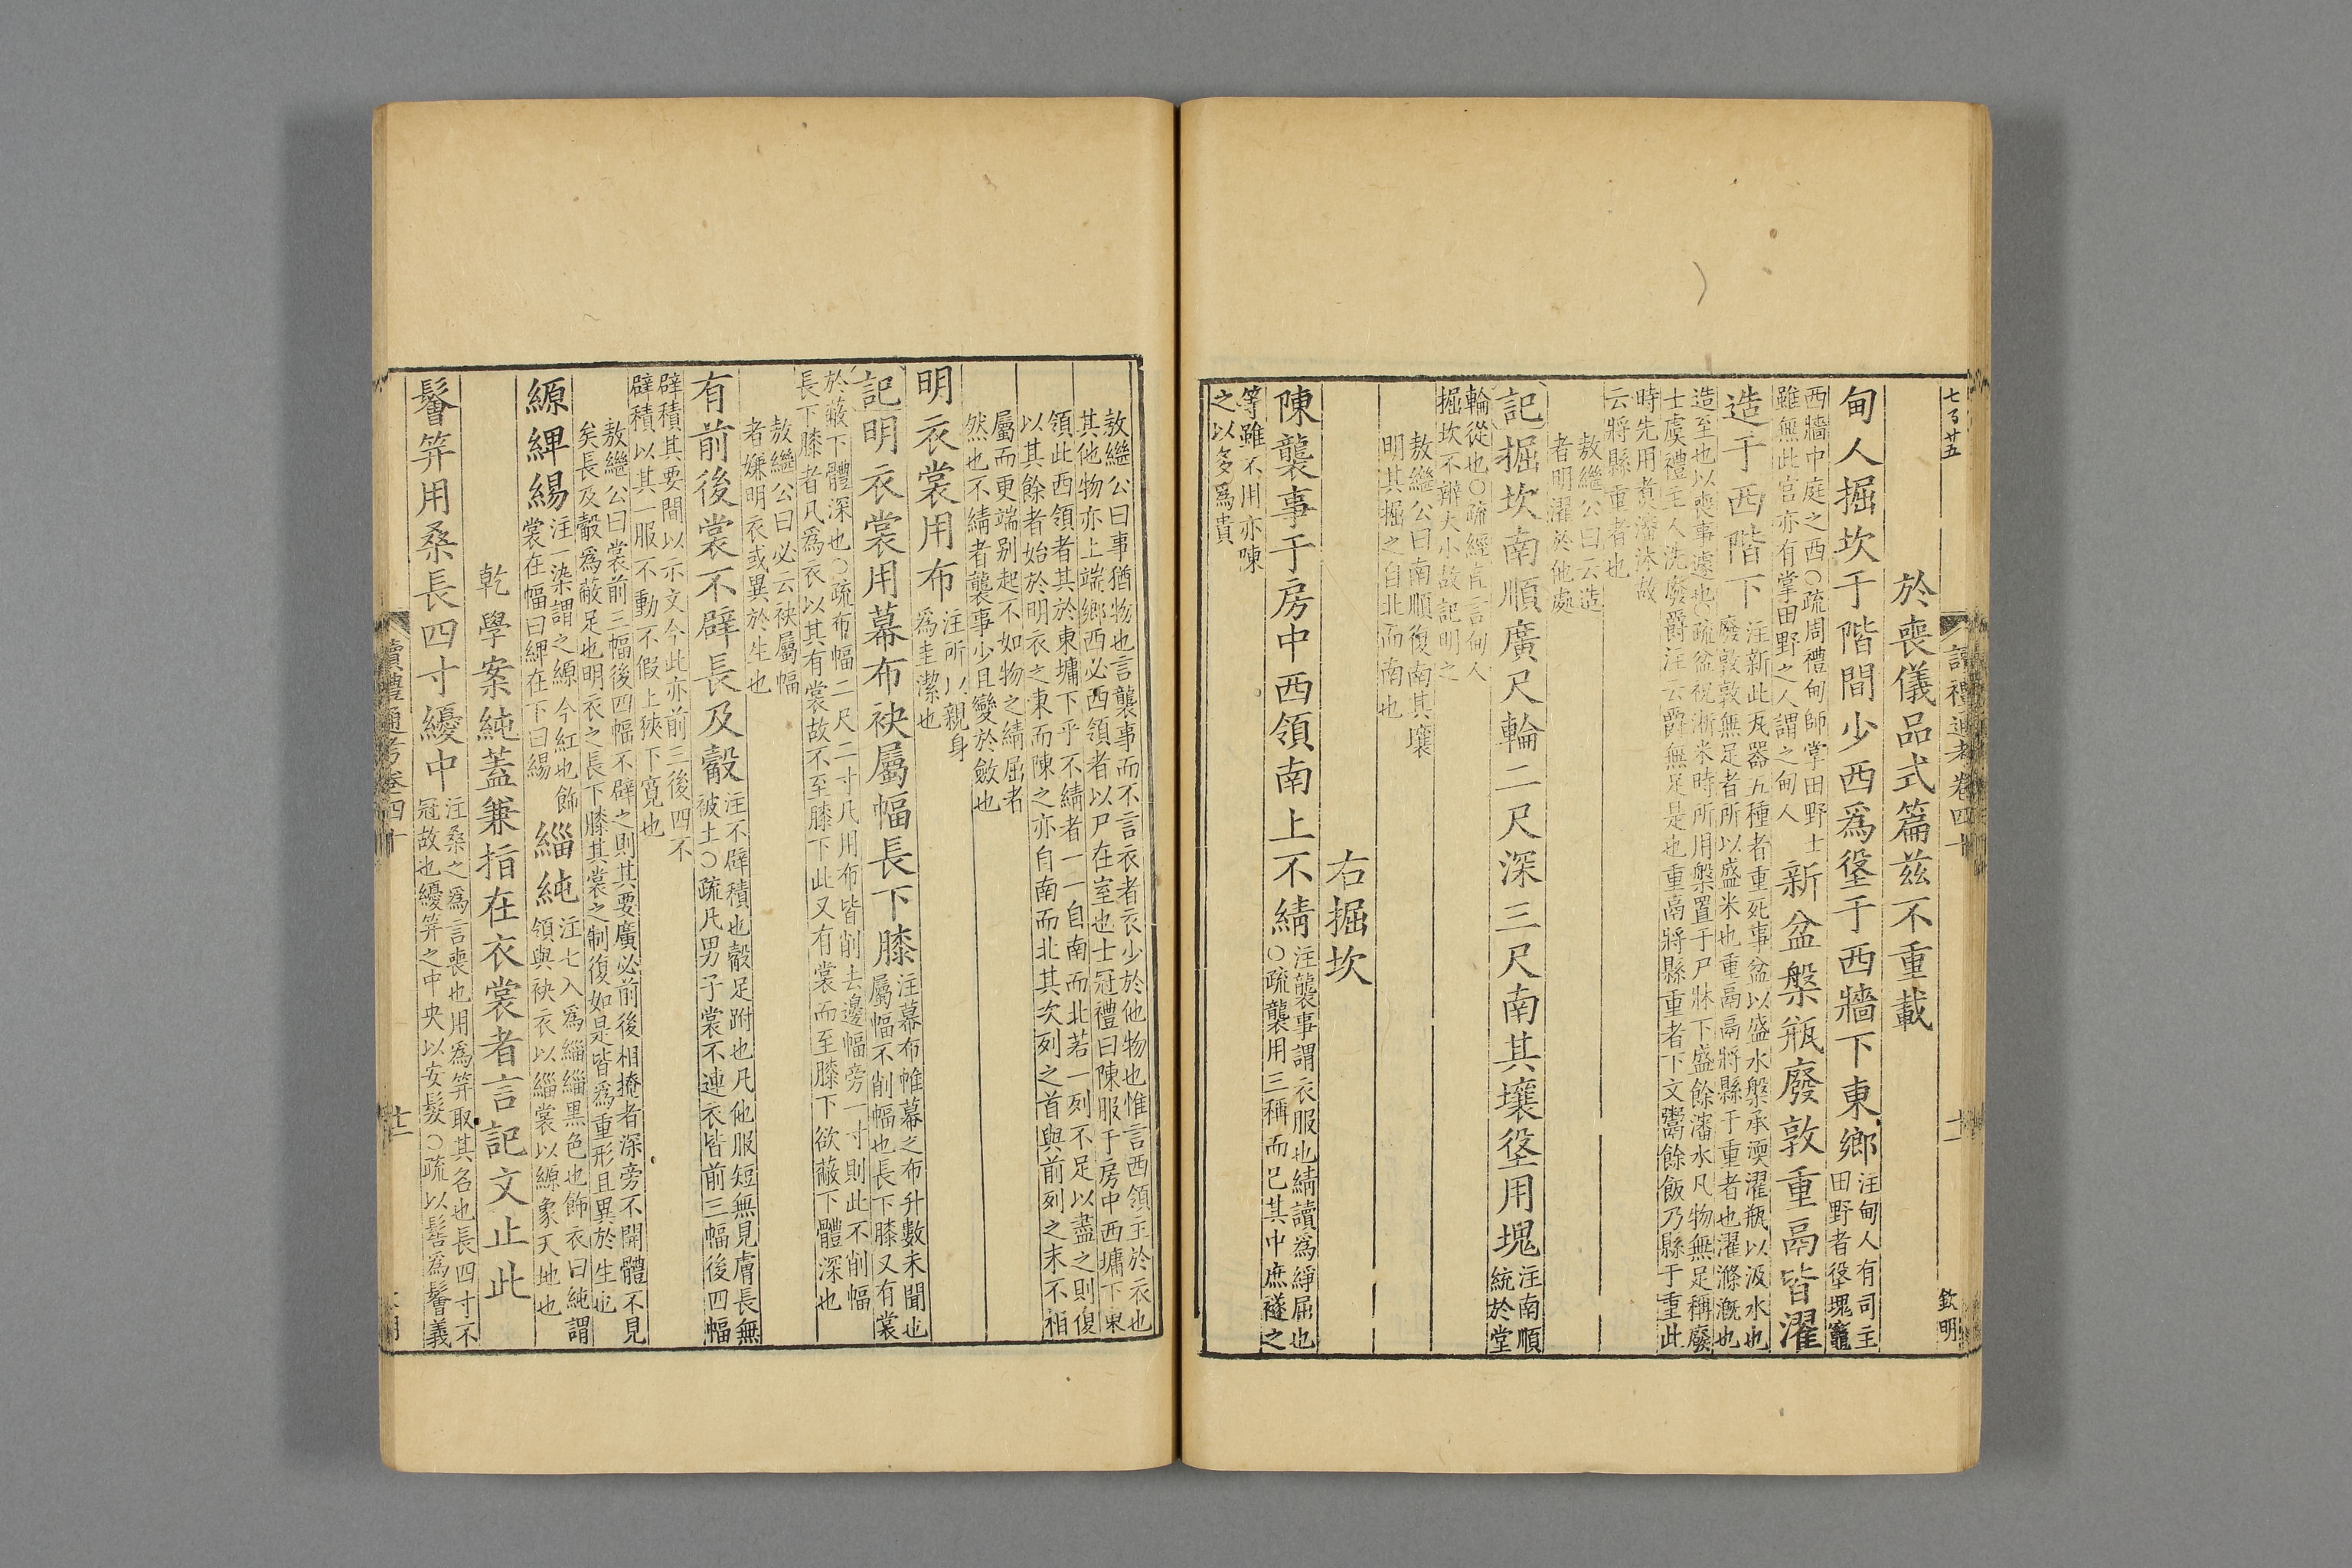 七百廿五
讀禮通考卷四十
十一
欽明
於喪儀品式篇茲不重載
甸人掘坎于階間少西爲垼于西牆下東鄉
注甸人有司主
田野者垼塊竈
西牆中庭之西○疏周禮甸師掌田野士
雖無此官亦有掌田野之人謂之甸人
新盆槃瓶廢敦重鬲皆濯
造于西階下
注新此瓦器五種者重死事盆以盛水槃承渜濯瓶以汲水也
廢敦敦無足者所以盛米也重鬲鬲將縣于重者也濯滌漑也
造至也以喪事遽也○疏盆祝淅米時所用槃置于尸牀下盛餘潘水凡物無足稱廢
士虞禮主人洗廢爵注云爵無足是也重鬲將縣重者下文鬻餘飯乃縣于重此
時先用煑潘沐故
云將縣重者也
敖繼公曰云造
者明濯於他處
記掘坎南順廣尺輪二尺深三尺南其壤垼用塊
注南順
統於堂
輪從也○疏經直言甸人
掘坎不辨大小故記明之
敖繼公曰南順復南其壤
明其掘之自北而南也
右掘坎
陳襲事于房中西領南上不綪
注襲事謂衣服也綪讀爲絳屈也
○疏襲用三稱而已其中庶襚之
等雖不用亦陳
之以多爲貴
敖繼公曰事猶物也言襲事而不言衣者衣少於他物也惟言西領主於衣也
其他物亦上端鄉西必西領者以尸在室也士冠禮曰陳服于房中西墉下東
領此西領者其於東墉下乎不綪者一一自南而北若一列不足以盡之則復
以其餘者始於明衣之東而陳之亦自南而北其次列之首與前列之末不相
屬而更端别起不如物之綪屈者
然也不綪者襲事少且變於斂也
明衣裳用布
注所以親身
爲圭潔也
記明衣裳用幕布袂屬幅長下膝
注幕布帷幕之布升數未聞也
屬幅不削幅也長下膝又有裳
於蔽下體深也○疏布幅二尺二寸凡用布皆削去邊幅旁一寸則此不削幅
長下膝者凡爲衣以其有裳故不至膝下此又有裳而至膝下欲蔽下體深也
敖繼公曰必云袂屬幅
者嫌明衣或異於生也
有前後裳不辟長及觳
注不辟積也觳足跗也凡他服短無見膚長無
被土○疏凡男子裳不連衣皆前三幅後四幅
辟積其要間以示文今此亦前三後四不
辟積以其一服不動不假上狹下寬也
敖繼公曰裳前三幅後四幅不辟之則其要廣必前後相掩者深旁不開體不見
矣長及觳爲蔽足也明衣之長下膝其裳之制復如是皆爲重形且異於生也
縓綼緆
注一染謂之縓今紅也飾
裳在幅曰綼在下曰緆
緇純
注七入爲緇緇黑色也飾衣曰純謂
領與袂衣以緇裳以縓象天地也
乾學案純蓋兼指在衣裳者言記文止此
鬠笄用桑長四寸纋中
注桑之爲言喪也用爲笄取其名也長四寸不
冠故也纋笄之中央以安髮○疏以髻爲鬠義
讀禮通考卷四十